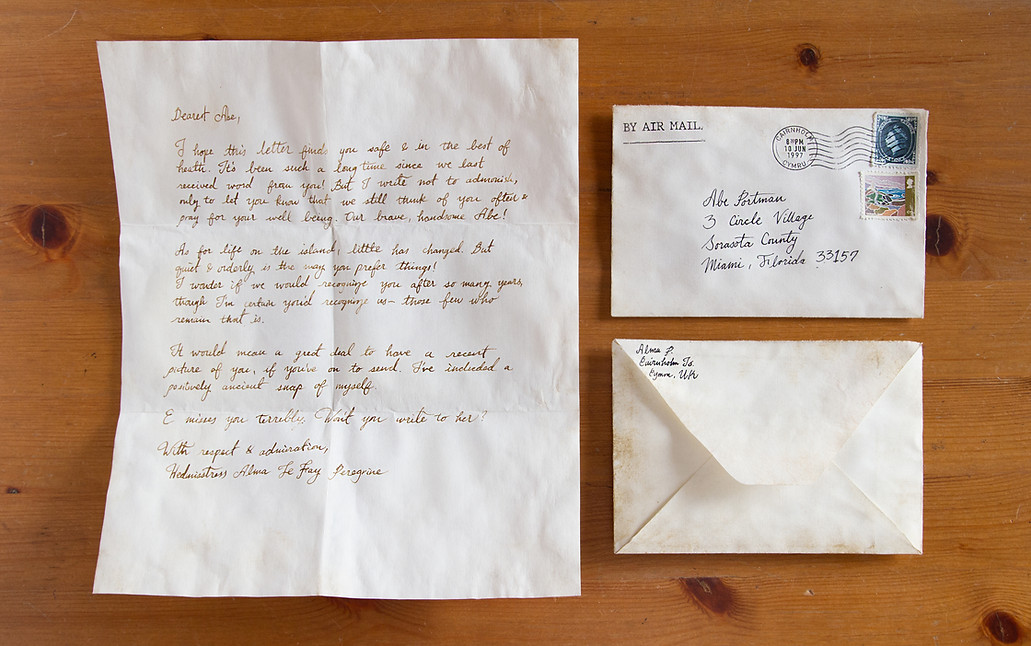 Dearest Abe,
I hope this letter finds you safe & in the best of
heath. It's been such a long time since we last
received word from you! But I write not to admonish,
only to let you know that we still think of you often &
pray for your well being. Our brave, handsome Abe!
As for life on the island, little has changed. But
quiet & orderly is the way you prefer things!
I wonder if we would recognize you after so many years,
though I'm certain you'd recognize us - those few who
remain that is.
It would mean a great deal to have a recent
picture of you, if you've on to send. I've included a
positively ancient snap of myself.
E misses you terribly. Won't you write to her?
With respect & admiration,
Hedmisstress Alma Le Fay Peregrine
BY AIR MAIL.
CAIRNHOLM
8 PM
10 JUN
1997
CYMRU
Abe Portman
3 Circle Village
Sorasota County
Miami, Florida 33157
Alma P.
Cairnholm Is.
Cymru, UK